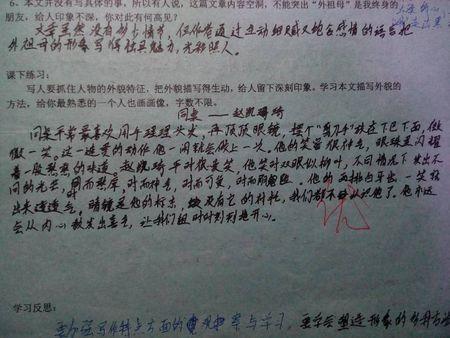 6. 本文并没有写具体的事，所以有人说，这篇文章内容空洞，不能突出“外祖母”是我终身的
朋友，给人印象不深。你对此有何高见？
文章虽然没有动人情节，但作者通过生动细腻又饱含感情的语言把
外祖母的形象写得极具魅力，光彩照人。
课下练习：
写人要抓住人物的外貌特征，把外貌描写得生动，给人留下深刻印象。学习本文描写外貌的
方法，给你最熟悉的一个人也画画像，字数不限。
同桌——赵凯琦
同桌平常最喜欢用手理理头发，再顶顶眼镜，摆个“剪刀手”放在下巴下面，傲
傲一笑。这一连贯的动作他一闲就会做上一次。他的笑容很特别，眼珠里闪耀
着一股的味道。赵凯琦平时很爱笑，他笑时双眼似柳叶，不同情况下发出不
同的光芒，时而憨厚，时而帅气，时而可爱，时而。他的两排白牙出一笑
出来。眼镜是他的标志，没有它的衬托，我们都不认识他了。他永远
会从内心散发出喜气，让我们组时时刻刻地开心。
优
学习反思：
要加强写作特点方面的观察与学习，要学会塑造形象的各种方法